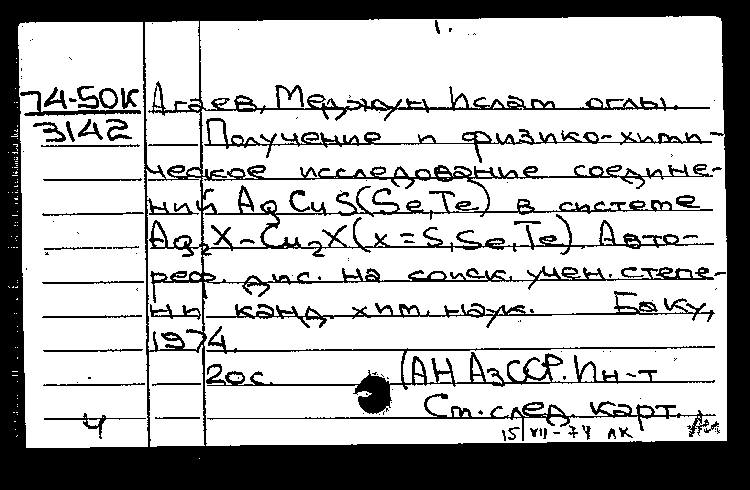 1.
74-50К Агаев, Меджнун Ислам оглы.
3142 Получение и физико-хими-
ческое исследование соедине-
ний AgCuS(Se,Te) в системе
Ag₂X-Cu₂X(x=S,Se,Te). Авто-
реф. дис. на соиск. учен. степе-
ни канд. хим. наук. Баку,
1974.
20с. (АН АзССР. Ин-т
См. след. карт.
4 15/VII-74 ЛК